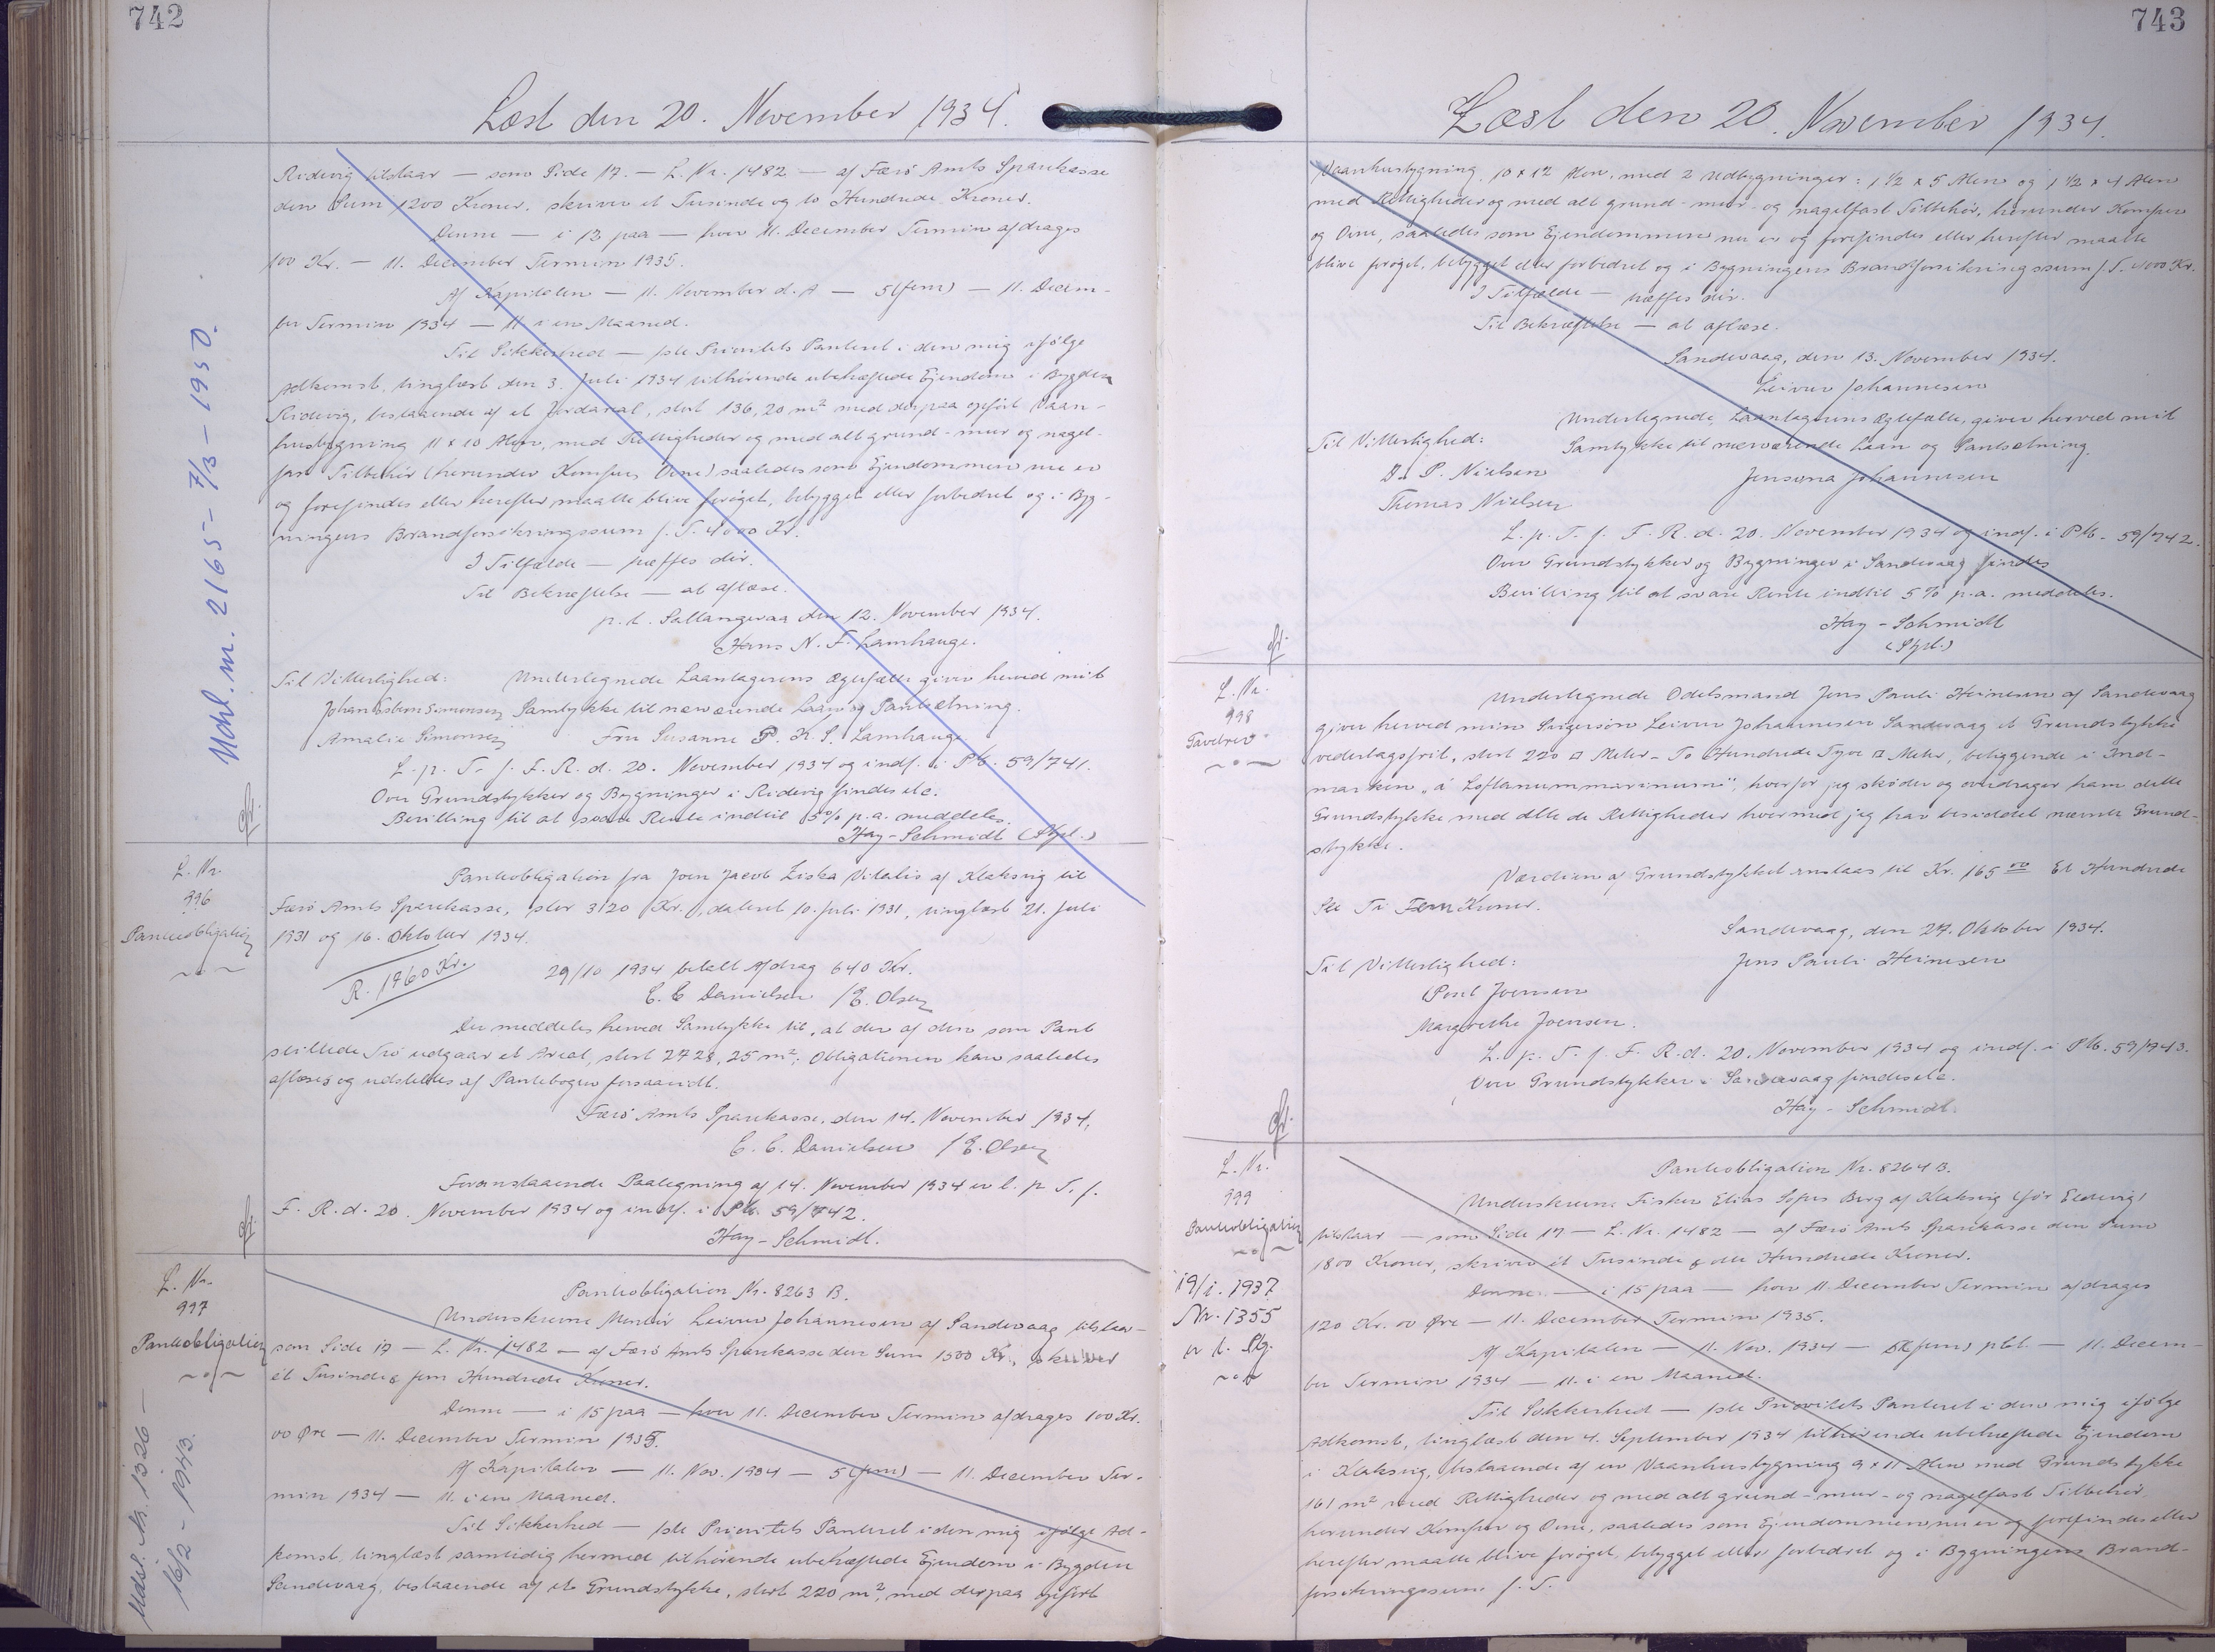 742
Læst den 20. November 1934.
Ridevig tilstaar — som Side 17. — L. Nr. 1482 — af Færø Amts Sparekasse
den Sum 1200 Kroner. skriver et Tusinde og to Hundrede Kroner.
Denne — i 12 paa — hver 11. December Termin afdrages
100 Kr. — 11. December Termin 1935.
Af Kapitalen — 11. November d. A — 5 (fem) — 11. Decem-
ber Termin 1934 — 11 i en Maaned.
Til Sikkerhed — 1ste Prioritets Panteret i den mig ifølge
Adkomst, tinglæst den 3. Juli 1934 tilhørende ubehæftede Ejendom i Bygden
Ridevig, bestaaende af et Jordareal, stort 136,20 m² med derpaa opført Vaan-
husbygning 11 x 10 Alen, med Rettigheder og med alt grund- mur og nagel-
fast Tilbehør (herunder Komfur, Ovne) saaledes som Ejendommen nu er
og forefindes eller herefter maatte blive forøget, bebygget eller forbedret og i Byg-
ningens Brandforsikringssum f. T. 4000 Kr.
I Tilfælde — træffes dér.
Til Bekræftelse — at aflæse.
p. t. Saltangeraa den 12. November 1934.
Hans N. F. Lamhauge.
Til Vitterlighed: Undertegnede Laantagerens Ægtefælle giver herved mit
Johan Esbern Simonsen Samtykke til nærværende Laan og Pantsætning.
Amalie Simonsen Fru Susanne P. K. S. Lamhauge
L. p. T. f. F. R. d. 20. November 1934 og indf. i Pb. 59/741.
Over Grundstykker og Bygninger i Ridevig findes etc.
Bevilling til at svare Rente indtil 5% p.a. meddeles.
Hay-Schmidt (Stpl.)
Udsl. m. 2165 - 7/3 - 1950.
L. Nr.
996
Panteobligation
Panteobligation fra Joen Jacob Ziska Vitalis af Klaksvig til
Færø Amts Sparekasse, stor 3120 Kr., dateret 10. Juli 1931, tinglæst 21. Juli
1931 og 16. Oktober 1934.
R. 1860 Kr. 29/10 1934 betalt Afdrag 640 Kr.
C. C. Danielsen / E. Olsen
Der meddeles herved Samtykke til, at der af den som Pant
stillede Trø udgaar et Areal, stort 2728,25 m²; Obligationen kan saaledes
aflæses og udslettes af Pantebogen forsaavidt.
Færø Amts Sparekasse, den 14. November 1934.
C. C. Danielsen / E. Olsen
Foranstaaende Paategning af 14. November 1934 er l. p T. f.
F. R. d. 20. November 1934 og indf. i Pb. 59/742.
Hay-Schmidt.
L. Nr.
997
Panteobligation
Udsl. Nr. 1326 —
16/2 - 1943.
Panteobligation Nr. 8263 B.
Underskrevne Murer Leivur Johannesen af Sandevaag tilstaar —
som Side 17 — L. Nr. 1482 — af Færø Amts Sparekasse den Sum 1500 Kr., skriver
ét Tusinde & fem Hundrede Kroner.
Denne — i 15 paa — hver 11. December Termin afdrages 100 Kr.
00 Øre — 11. December Termin 1935.
Af Kapitalen — 11. Nov. 1934 — 5 (fem) — 11. December Ter-
min 1934 — 11. i en Maaned.
Til Sikkerhed — 1ste Prioritets Panteret i den mig ifølge Ad-
komst, tinglæst samtidig hermed tilhørende ubehæftede Ejendom i Bygden
Sandevaag, bestaaende af et Grundstykke, stort 220 m², med derpaa opført
743
Læst den 20. November 1934.
Vaanhusbygning 10 x 12 Alen, med 2 Udbygninger: 1 1/2 x 5 Alen og 1 1/2 x 4 Alen
med Rettigheder og med alt grund- mur- og nagelfast Tilbehør, herunder Komfur
og Ovne, saaledes som Ejendommen nu er og forefindes eller herefter maatte
blive forøget, bebygget eller forbedret og i Bygningens Brandforsikringssum f. T. 4000 Kr.
I Tilfælde — træffes dér.
Til Bekræftelse — at aflæse.
Sandevaag, den 13. November 1934.
Leivur Johannesen
Undertegnede, Laantagerens Ægtefælle, giver herved mit
Til Vitterlighed: Samtykke til nærværende Laan og Pantsætning.
D. P. Nielsen Jensina Johannesen
Thomas Nielsen
L. p. T. f. F. R. d. 20. November 1934 og indf. i Pb. 59/742.
Over Grundstykker og Bygninger i Sandevaag findes
Bevilling til at svare Rente indtil 5% p.a. meddeles.
Hay-Schmidt
(Stpl.)
L. Nr.
998
Gavebrev
Undertegnede Odelsmand Jens Pauli Heinesen af Sandevaag
giver herved min Svigersøn Leivur Johannesen Sandevaag et Grundstykke
vederlagsfrit, stort 220 □ Meter - To Hundrede Tyve □ Meter, beliggende i Ind-
marken, hvorfor jeg skøder og overdrager ham dette
Grundstykke med alle de Rettigheder hvormed jeg har besiddet nævnte Grund-
stykke.
Værdien af Grundstykket anslaas til Kr. 165 00 Et Hundrede
Seksti Fem Kroner.
Sandevaag, den 27. Oktober 1934.
Til Vitterlighed: Jens Pauli Heinesen
Poul Joensen
Margrethe Joensen.
L. p. T. f. F. R. d. 20. November 1934 og indf. i Pb. 59/743.
Over Grundstykker i Sandevaag findes etc.
Hay-Schmidt
L. Nr.
999
Panteobligation
19/1. 1937
Nr. 1355
Panteobligation Nr. 8264 B.
Underskrevne Fisker Elias Sofus Berg af Klaksvig (før Eldevig)
tilstaar — som Side 17 — L. Nr. 1482 — af Færø Amts Sparekasse den Sum
1800 Kroner, skriver ét Tusinde & otte Hundrede Kroner.
Denne — i 15 paa — hver 11. December Termin afdrages
120 Kr. 00 Øre — 11. December Termin 1935.
Af Kapitalen — 11. Nov. 1934 — 5 (fem) pCt — 11. Decem-
ber Termin 1934 — 11. i en Maaned.
Til Sikkerhed — 1ste Prioritets Panteret i den mig ifølge
Adkomst, tinglæst den 4. September 1934 tilhørende ubehæftede Ejendom
i Klaksvig, bestaaende af en Vaanhusbygning 9 x 11 Alen med Grundstykke
161 m² med Rettigheder og med alt grund- mur- og nagelfast Tilbehør
herunder Komfur og Ovne, saaledes som Ejendommen nu er og forefindes eller
herefter maatte blive forøget, bebygget eller forbedret og i Bygningens Brand-
forsikringssum f. T.